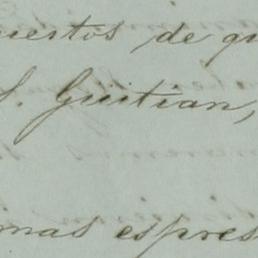 uestos de qu
S. Guitian,
imas espres